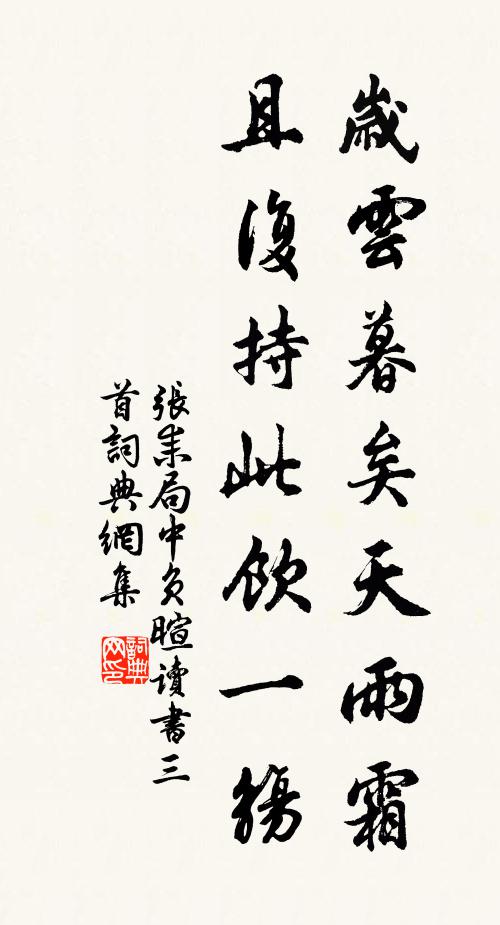 歲雲暮矣天雨霜
且復持此飲一觴
張耒局中負暄讀書三
首詞典網集
詞典
网印